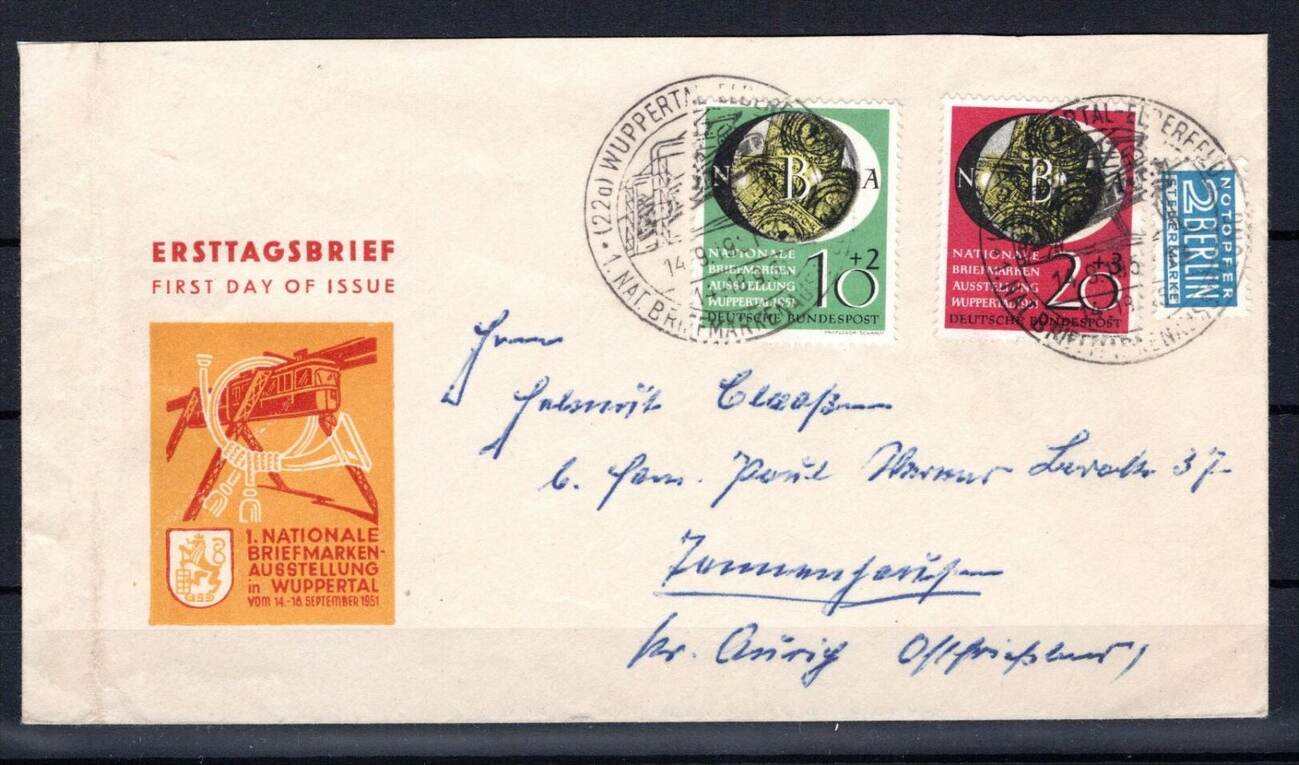 ERSTTAGSBRIEF
FIRST DAY OF ISSUE
1. NATIONALE
BRIEFMARKEN-
AUSSTELLUNG
in WUPPERTAL
VOM 14.-18. SEPTEMBER 1951
(22a) WUPPERTAL-ELBERFELD
14.9.19
1. NAT. BRIEFMARKENAUSST
N B A
NATIONALE
BRIEFMARKEN
AUSSTELLUNG
WUPPERTAL 1951
10+2
DEUTSCHE BUNDESPOST
PROFESSOR SCHARDT
N B
NATIONALE
BRIEFMARKEN
AUSSTELLUNG
WUPPERTAL 1951
20+3
DEUTSCHE BUNDESPOST
NOTOPFER
2 BERLIN
STEUERMARKE
Herrn
Helmut Claaßen
b. Fam. Paul Werner 37
Tannenhausen
Kr. Aurich Ostfriesland